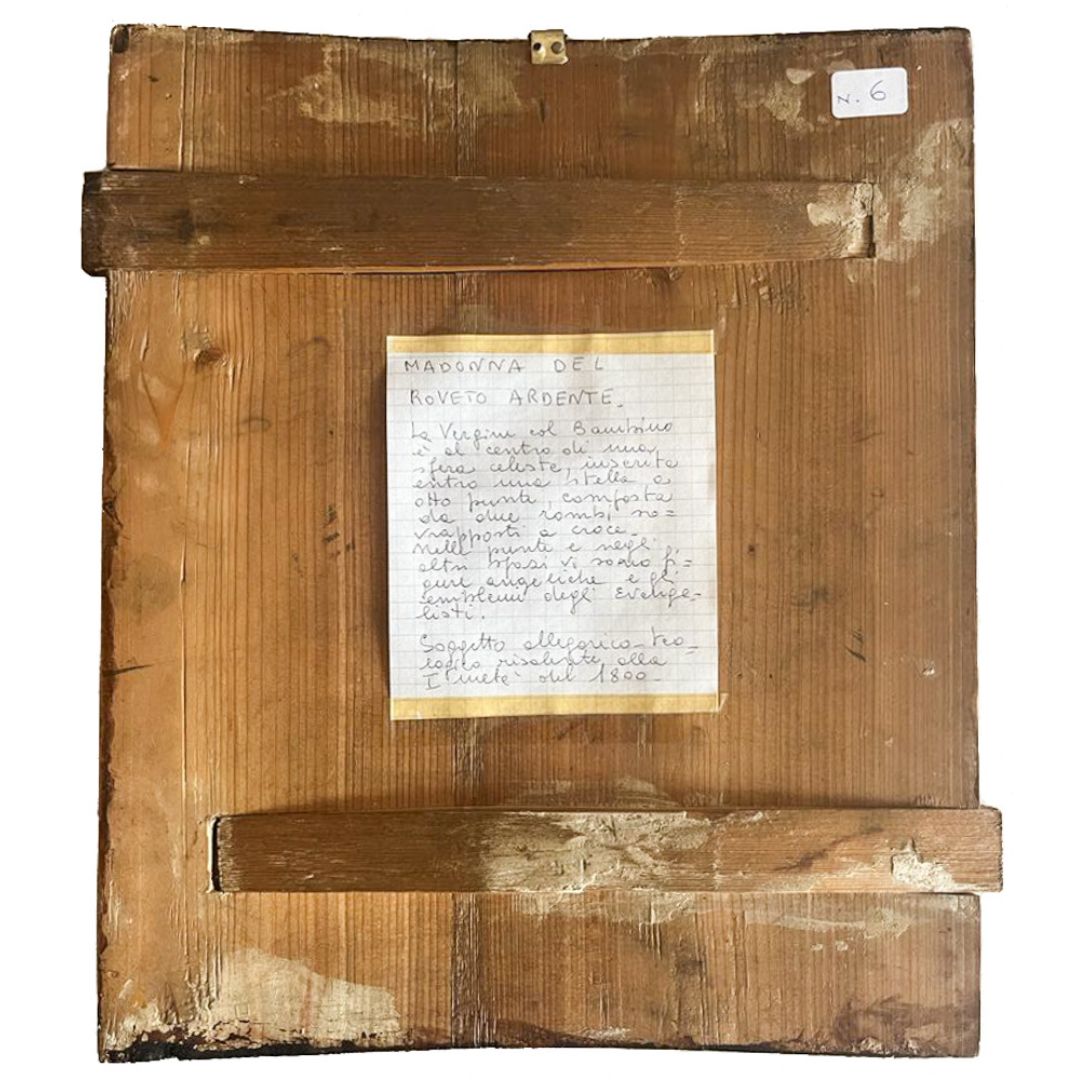 N. 6
MADONNA DEL
ROVETO ARDENTE.
La Vergine col Bambino
è al centro di una
sfera celeste, inserita
entro una stella a
otto punte, composta
da due rombi so=
vrapposti a croce.
Nelle punte e negli
altri spazi vi sono fi=
gure angeliche e gli
emblemi degli Evange-
listi.
Soggetto allegorico-teo-
logico risalente alla
I metà del 1800-